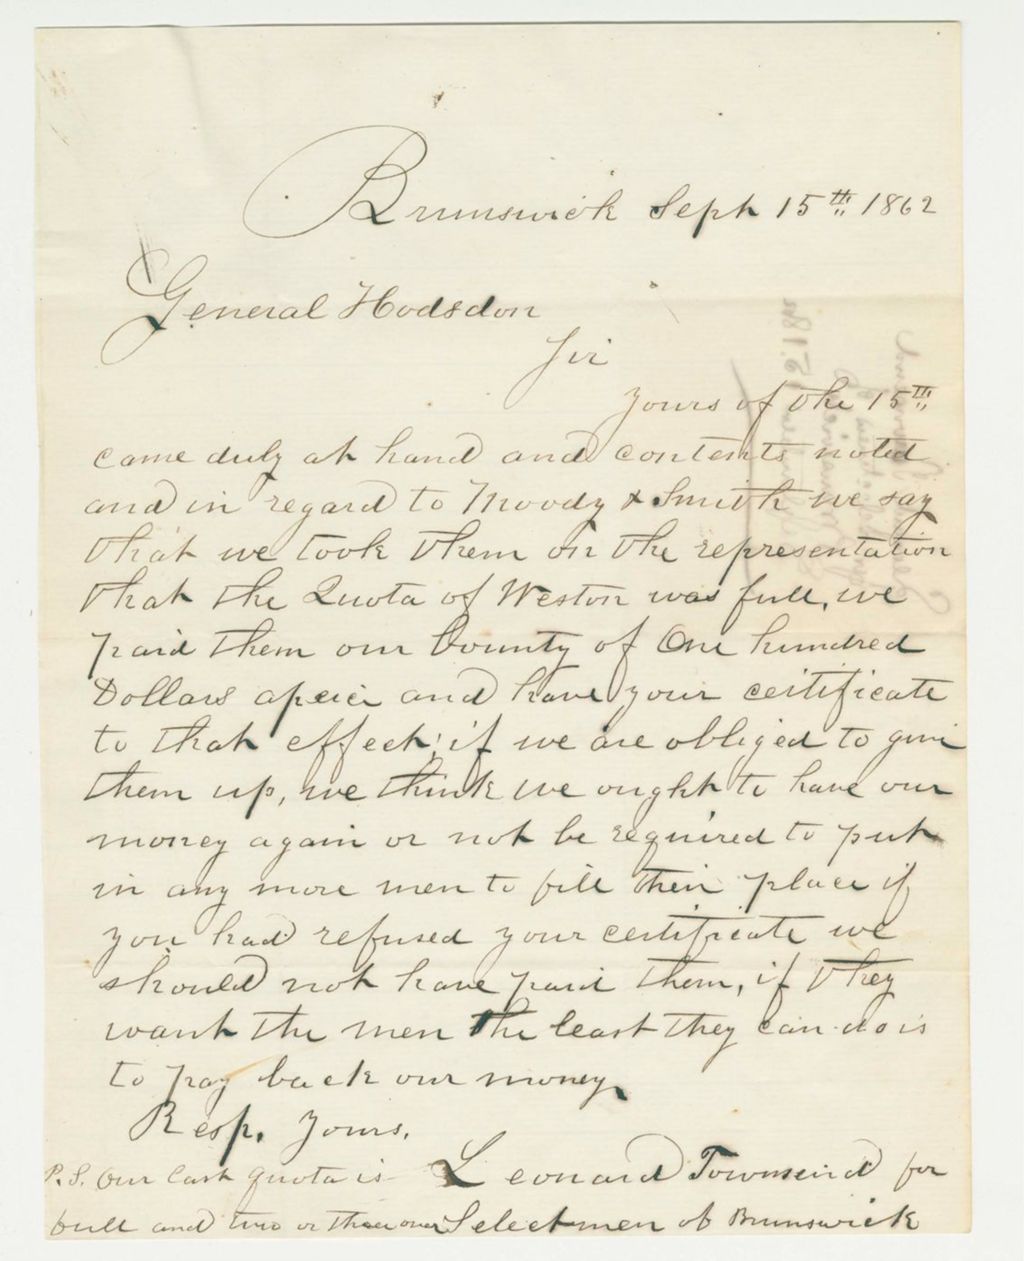 Brunswick Sept 15th 1862
General Hodsdon
Sir
Yours of the 15th
came duly at hand and contents noted
and in regard to Moody & Smith we say
that we took them on the representation
that the Quota of Weston was full, we
paid them our bounty of One hundred
Dollars apeice and have your certificate
to that effect; if we are obliged to give
them up, we think we ought to have our
money again or not be required to put
in any more men to fill their place if
you had refused your certificate we
should not have paid them, if they
want the men the least they can do is
to pay back our money
Resp. Yours,
Leonard Townsend for
Selectmen of Brunswick
P.S. Our last quota is
full and two or three over